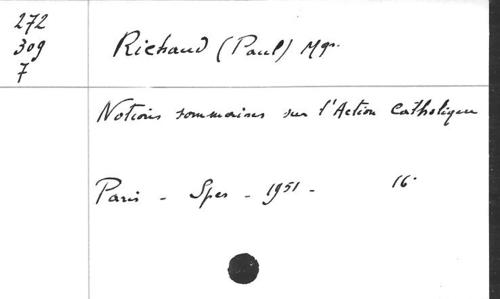 272
309
7
Richaud (Paul) Mgr.
Notions sommaires sur l'Action Catholique
Paris - Spes - 1951 - 16°